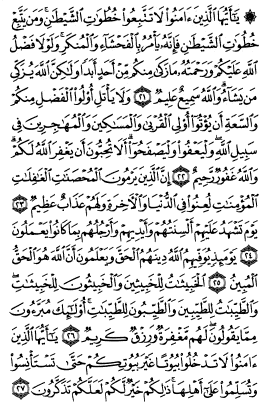 ۞ يَٰٓأَيُّهَا ٱلَّذِينَ ءَامَنُوا۟ لَا تَتَّبِعُوا۟ خُطُوَٰتِ ٱلشَّيْطَٰنِ ۚ وَمَن يَتَّبِعْ
خُطُوَٰتِ ٱلشَّيْطَٰنِ فَإِنَّهُۥ يَأْمُرُ بِٱلْفَحْشَآءِ وَٱلْمُنكَرِ ۚ وَلَوْلَا فَضْلُ
ٱللَّهِ عَلَيْكُمْ وَرَحْمَتُهُۥ مَا زَكَىٰ مِنكُم مِّنْ أَحَدٍ أَبَدًا وَلَٰكِنَّ ٱللَّهَ يُزَكِّى
مَن يَشَآءُ ۗ وَٱللَّهُ سَمِيعٌ عَلِيمٌ ﴿٢١﴾ وَلَا يَأْتَلِ أُو۟لُوا۟ ٱلْفَضْلِ مِنكُمْ
وَٱلسَّعَةِ أَن يُؤْتُوٓا۟ أُو۟لِى ٱلْقُرْبَىٰ وَٱلْمَسَٰكِينَ وَٱلْمُهَٰجِرِينَ فِى
سَبِيلِ ٱللَّهِ ۖ وَلْيَعْفُوا۟ وَلْيَصْفَحُوٓا۟ ۗ أَلَا تُحِبُّونَ أَن يَغْفِرَ ٱللَّهُ لَكُمْ ۗ
وَٱللَّهُ غَفُورٌ رَّحِيمٌ ﴿٢٢﴾ إِنَّ ٱلَّذِينَ يَرْمُونَ ٱلْمُحْصَنَٰتِ ٱلْغَٰفِلَٰتِ
ٱلْمُؤْمِنَٰتِ لُعِنُوا۟ فِى ٱلدُّنْيَا وَٱلْءَاخِرَةِ وَلَهُمْ عَذَابٌ عَظِيمٌ ﴿٢٣﴾
يَوْمَ تَشْهَدُ عَلَيْهِمْ أَلْسِنَتُهُمْ وَأَيْدِيهِمْ وَأَرْجُلُهُم بِمَا كَانُوا۟ يَعْمَلُونَ
﴿٢٤﴾ يَوْمَئِذٍ يُوَفِّيهِمُ ٱللَّهُ دِينَهُمُ ٱلْحَقَّ وَيَعْلَمُونَ أَنَّ ٱللَّهَ هُوَ ٱلْحَقُّ
ٱلْمُبِينُ ﴿٢٥﴾ ٱلْخَبِيثَٰتُ لِلْخَبِيثِينَ وَٱلْخَبِيثُونَ لِلْخَبِيثَٰتِ ۖ
وَٱلطَّيِّبَٰتُ لِلطَّيِّبِينَ وَٱلطَّيِّبُونَ لِلطَّيِّبَٰتِ ۚ أُو۟لَٰٓئِكَ مُبَرَّءُونَ
مِمَّا يَقُولُونَ ۖ لَهُم مَّغْفِرَةٌ وَرِزْقٌ كَرِيمٌ ﴿٢٦﴾ يَٰٓأَيُّهَا ٱلَّذِينَ
ءَامَنُوا۟ لَا تَدْخُلُوا۟ بُيُوتًا غَيْرَ بُيُوتِكُمْ حَتَّىٰ تَسْتَأْنِسُوا۟
وَتُسَلِّمُوا۟ عَلَىٰٓ أَهْلِهَا ۚ ذَٰلِكُمْ خَيْرٌ لَّكُمْ لَعَلَّكُمْ تَذَكَّرُونَ ﴿٢٧﴾